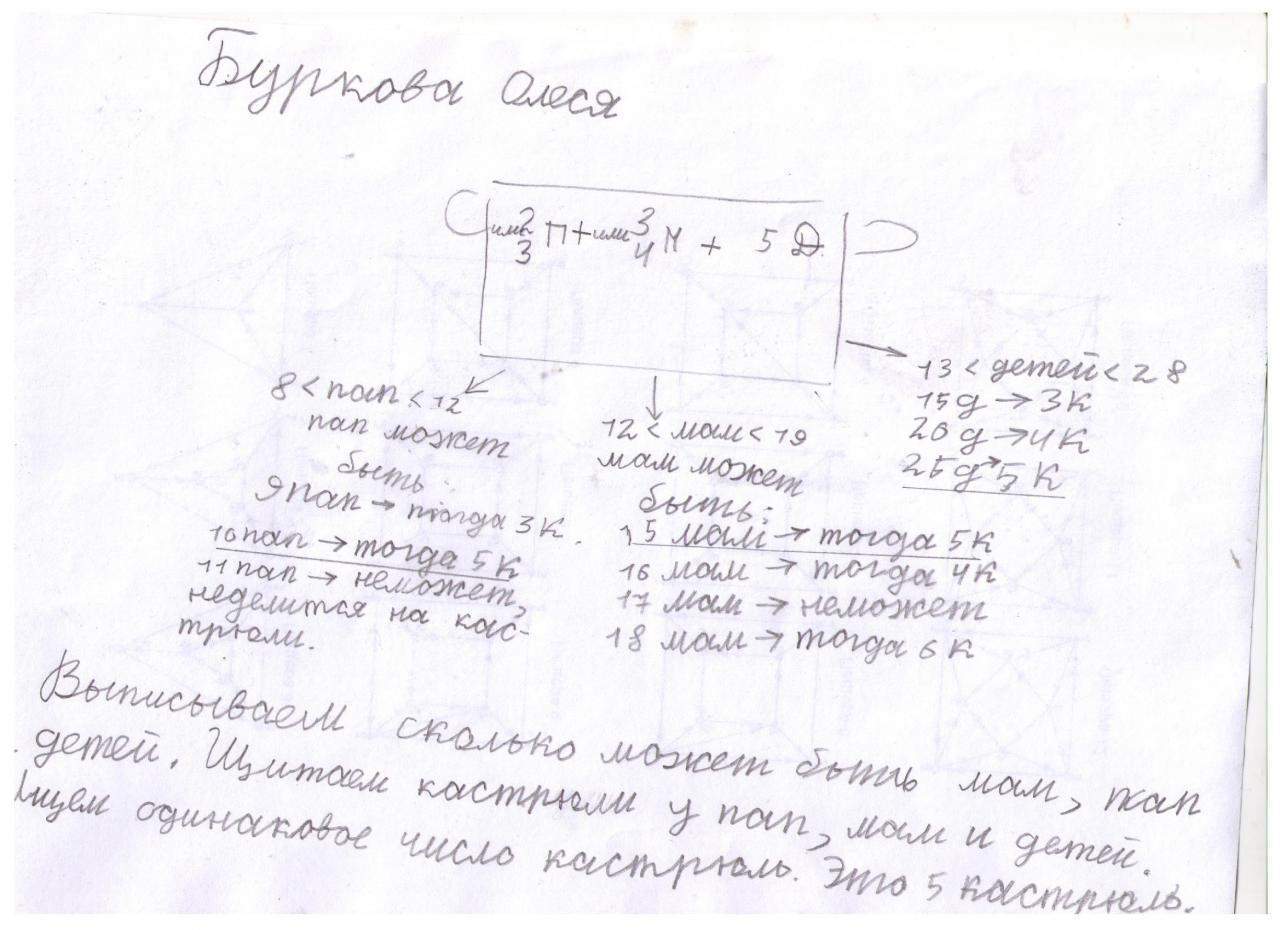 Буркова Олеся
или 2 3 П + или 3 4 М + 5 Д.
8 < пап < 12
пап может
быть
9 пап → тогда 3 К.
10 пап → тогда 5 К
11 пап → неможет,
неделится на кас-
трюли.
12 < мам < 19
мам может
быть:
15 мам → тогда 5 К
16 мам → тогда 4 К
17 мам → неможет
18 мам → тогда 6 К
13 < детей < 28
15 д → 3 К
20 д → 4 К
25 д → 5 К
Выписываем сколько может быть мам, пап
детей. Щитаем кастрюли у пап, мам и детей.
Ищем одинаковое число кастрюль. Это 5 кастрюль.